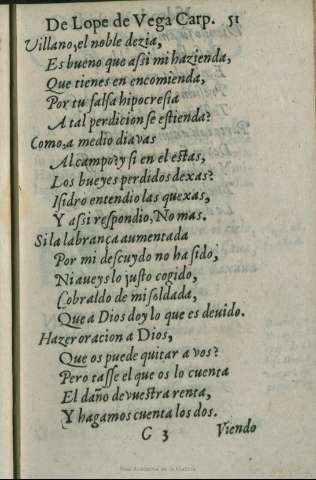 De Lope de Vega Carp. 51
Villano, el noble dezia,
Es bueno que assi mi hazienda,
Que tienes en encomienda,
Por tu falsa hipocresia
A tal perdicion se estienda?
Como, a medio dia vas
Al campo? y si en el estas,
Los bueyes perdidos dexas?
Isidro entendio las quexas,
Y assi respondio, No mas.
Si la labrança aumentada
Por mi descuydo no ha sido,
Ni aueys lo justo cogido,
Cobraldo de mi soldada,
Que a Dios doy lo que es deuido.
Hazer oracion a Dios,
Que os puede quitar a vos?
Pero tasse el que os lo cuenta
El daño de vuestra renta,
Y hagamos cuenta los dos.
C 3 Viendo
Real Academia de la Historia